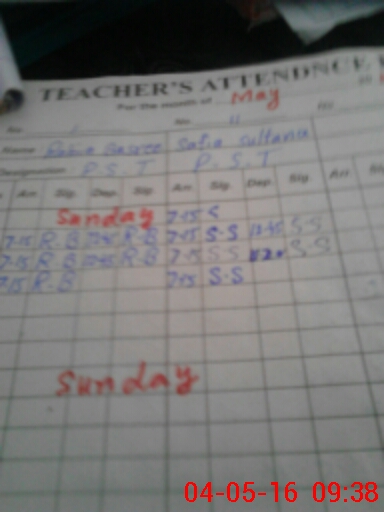 TEACHER'S ATTENDNCE
For the month of May
No. No. 11
Name Safia Sultana
Designation P.S.T P.S.T
Arr. Sig. Dep. Sig. Arr. Sig. Dep. Sig. Arr Sig.
Sunday 7-15 S
7-15 R-B 12-45 R-B 7-15 S-S 12-45 S-S
7-15 R-B 12-45 R-B 7-15 S-S S-S
7-15 R-B 7-15 S-S
Sunday
04-05-16 09:38